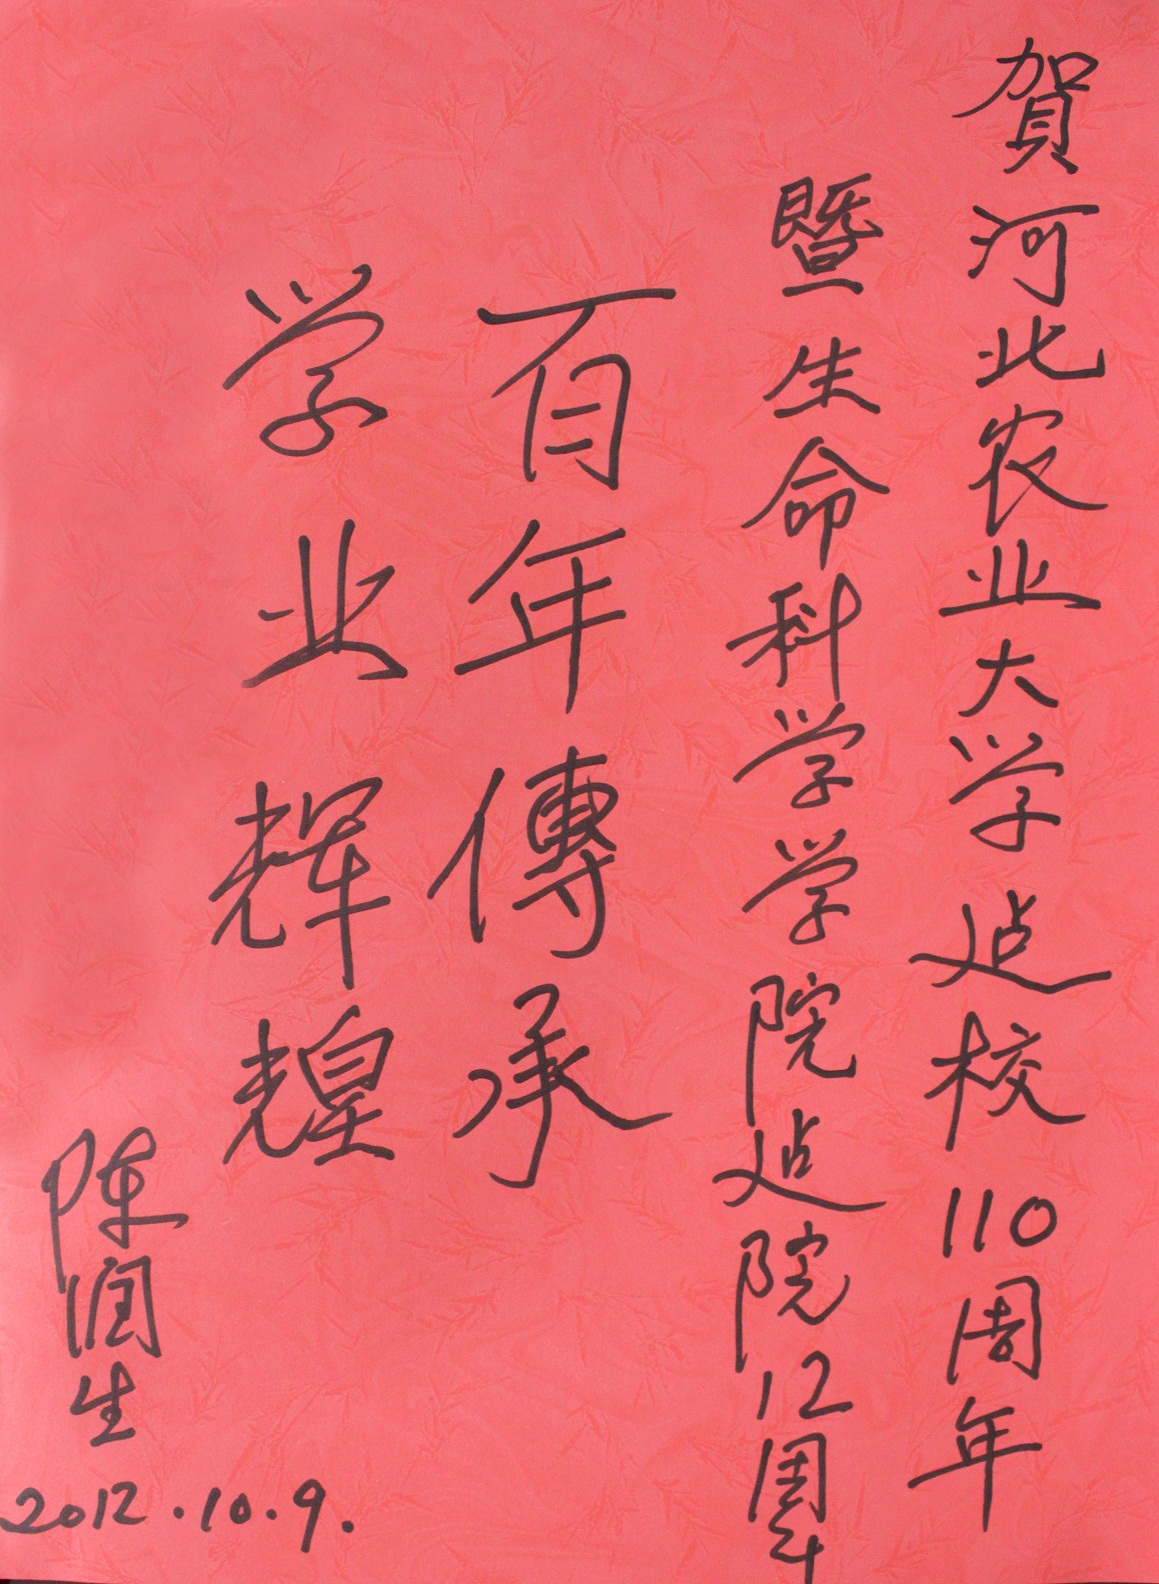 賀河北农业大学建校110周年
暨生命科学学院建院12周年
百年傳承
学业辉煌
陈润生
2012.10.9.